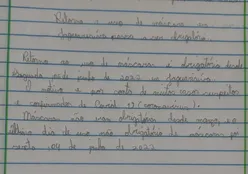 Retorno o uso de máscaras em
é obrigatório.
Retorno ao uso de máscaras é obrigatório desde
segunda de julho de 2022 na
O motivo é por conta de muitos casos suspeitos
e confirmados da Covid-19 (coronavírus).
Máscaras não eram obrigatórias desde março, e o
último dia de uso não obrigatório de máscaras foi
04 de julho de 2022